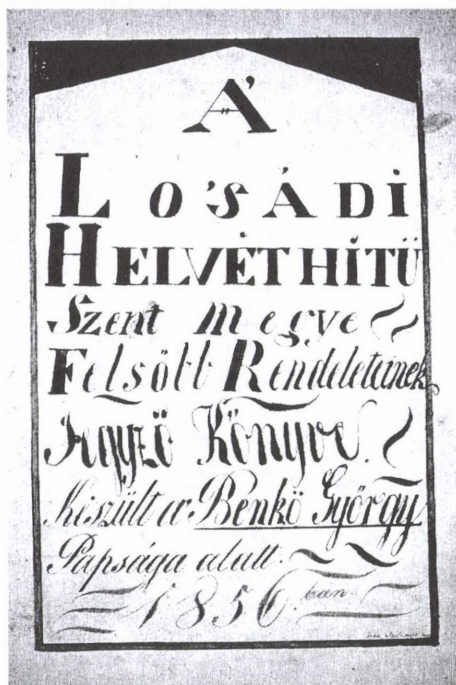 Á
LO'SÁDI
HELVÉT HITÜ
Szent megye
Felsöbb Rendeleteinek
Jegyző Könyve.
Készült a Benkö György
Papsága alatt.
1856.ban